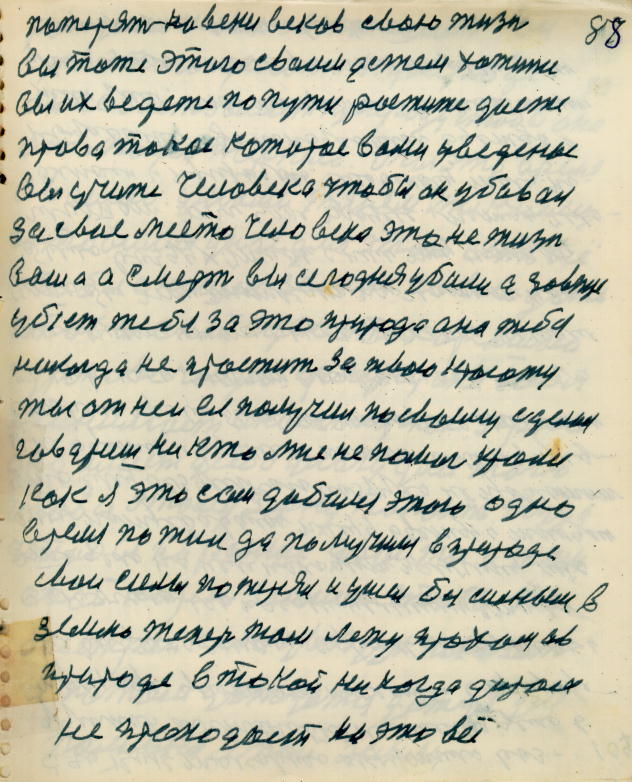 88
потерят на вени веков свою жизн
вы тоже этого своим детем хотите
вы их ведете по пути ростите даете
права такое каторое вами уведеное
вы учите человека чтобы он убавал
за свае место человека это не жизн
ваша а смерт вы сегодня убили а завтре
убьет тебя за это природа ана тебя
никогда не простит за твою красоту
ты от неи ее получил по своему сделал
говариш ни кто мне не помог кроми
как я это сам дабился этого одно
время пожил да получил в природе
свои силы потерял и ушел бессильным в
землю тепер там лежу прахом в
природе в токой никогда другоя
не преходает на это всё